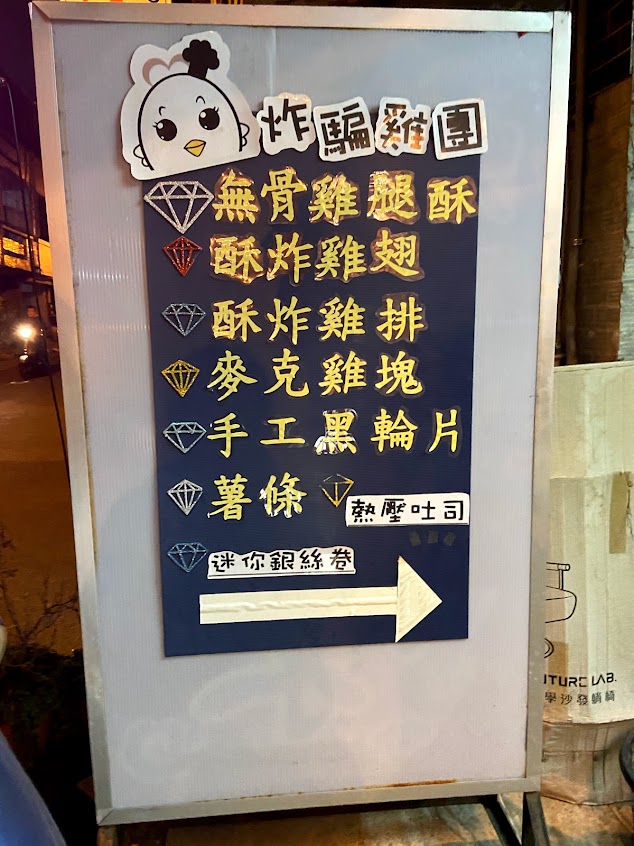 炸騙雞團
無骨雞腿酥
酥炸雞翅
酥炸雞排
麥克雞塊
手工黑輪片
薯條
熱壓吐司
迷你銀絲卷
UTURE LAB.
學沙發躺椅